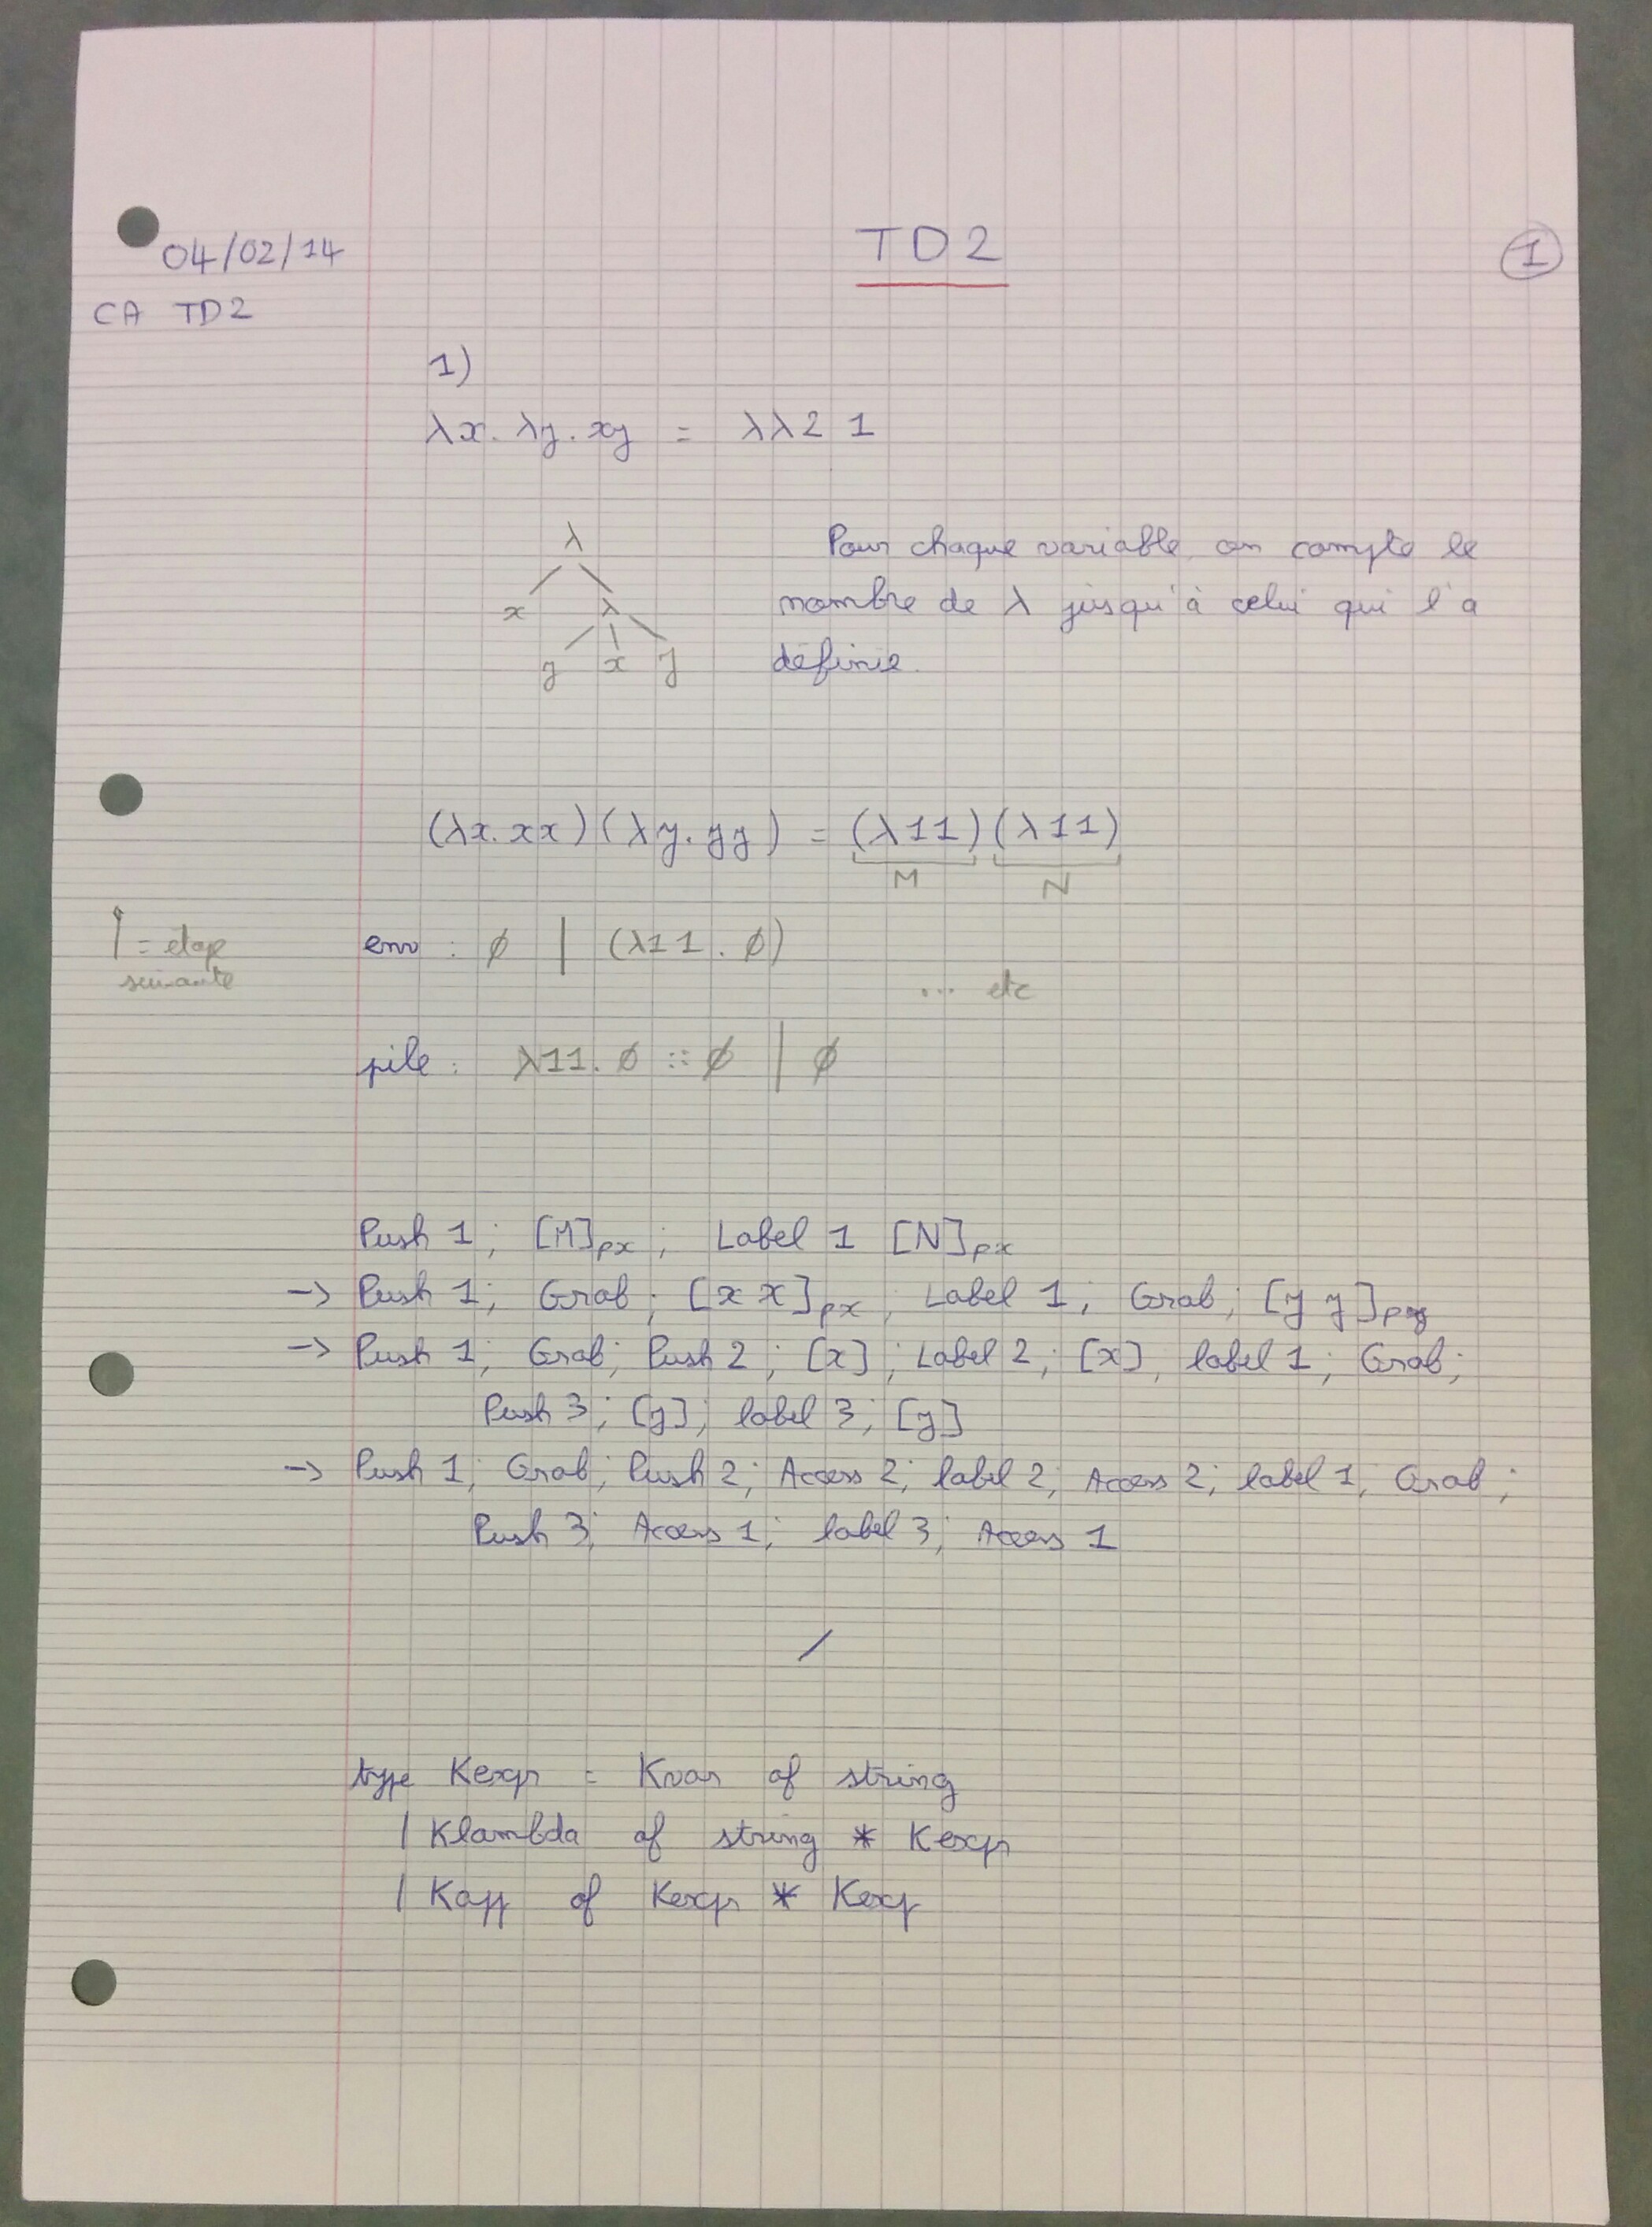 04/02/14
TD2
1
CA TD2
1)
λx. λy. xy = λλ2 1
λ
x λ
y x y
Pour chaque variable, on compte le
nombre de λ jusqu'à celui qui l'a
définie.
(λx. xx)(λy. yy) = (λ11)(λ11)
M N
| = étape
suivante
env : ø | (λ11. ø)
... etc
pile : λ11. ø :: ø | ø
Push 1; [M]ρx; Label 1 [N]ρx
-> Push 1; Grab; [x x]ρx; Label 1; Grab; [y y]ρy
-> Push 1; Grab; Push 2; [x]; Label 2; [x], label 1; Grab;
Push 3; [y]; label 3; [y]
-> Push 1; Grab; Push 2; Access 2; label 2; Access 2; label 1; Grab;
Push 3; Access 1; label 3; Access 1
/
type Kexpr = Kvar of string
| Klambda of string * Kexpr
| Kapp of Kexpr * Kexp